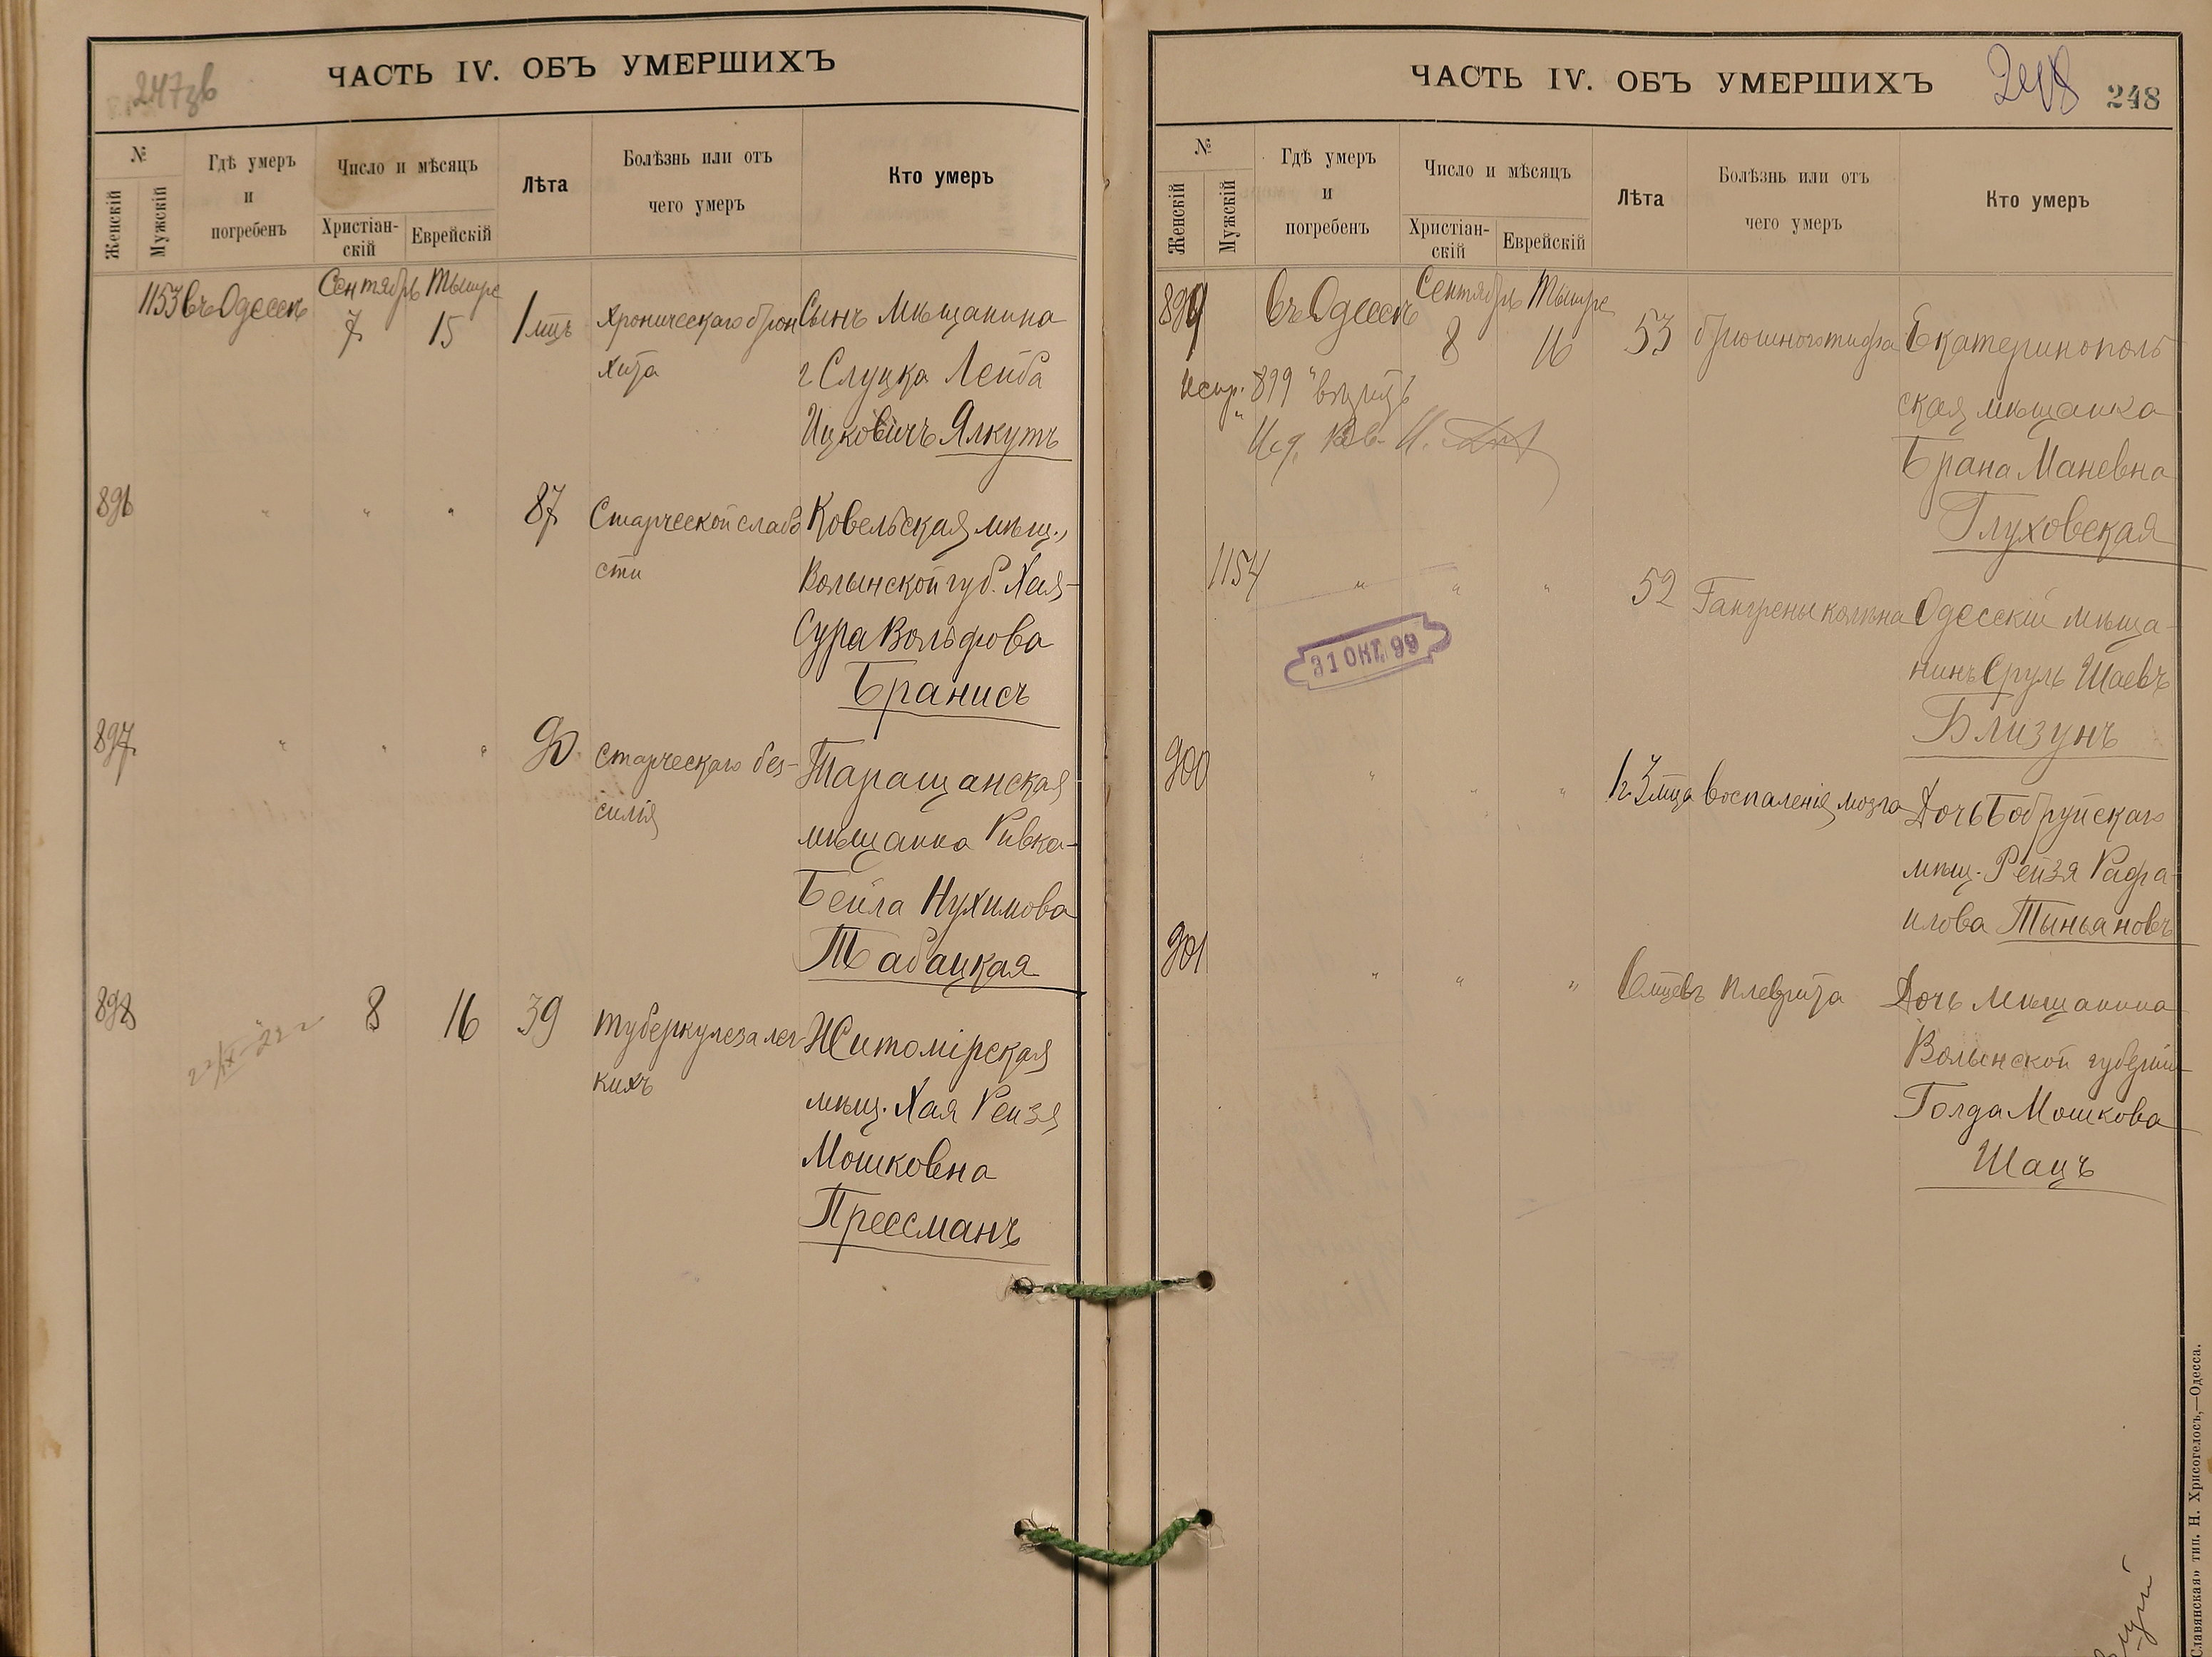 247 зв
ЧАСТЬ IV. ОБЪ УМЕРШИХЪ
№
Женскій
Мужскій
Гдѣ умеръ
и
погребенъ
Число и мѣсяцъ
Христіан-
скій
Еврейскій
Лѣта
Болѣзнь или отъ
чего умеръ
Кто умеръ
Сентябрь Тышре
1153 въ Одессѣ 7 15 1 мцъ Хроническаго брон Сынъ мѣщанина
хита г Слуцка Лейба
Ицковичъ Ялкутъ
896 " " " 87 Старческой слабо Ковельская мѣщ.,
сти Волынской губ. Хая-
Сура Вольфова
Бранисъ
897 " " " 90 старческаго без- Таращанская
силія мѣщанка Ривка-
Бейла Нухимова
Табацкая
898 " 8 16 39 туберкулеза лег Житомірская
кихъ мѣщ. Хая Рейзя
Мошковна
Прессманъ
ЧАСТЬ IV. ОБЪ УМЕРШИХЪ
248
248
№
Женскій
Мужскій
Гдѣ умеръ
и
погребенъ
Число и мѣсяцъ
Христіан-
скій
Еврейскій
Лѣта
Болѣзнь или отъ
чего умеръ
Кто умеръ
Сентябрь Тышре
899 въ Одессѣ 8 16 53 брюшного тифа Екатеринополь
ская мѣщанка
Испр. "899"
Брана Маневна
Глуховская
1154 " " " 52 Гангрены колѣна Одесскій мѣща-
нинъ Сруль Шаевъ
31 ОКТ. 99
Близунъ
900 " " " 1 г 3 мца воспаленія мозга Дочь Бобруйскаго
мѣщ. Рейзя Рафа-
илова Тыньяновъ
901 " " " мцевъ плеврита Дочь мѣщанина
Волынской губерніи
Голда Мошкова
Шацъ
Славянская» тип. Н. Хрисогелосъ,—Одесса.